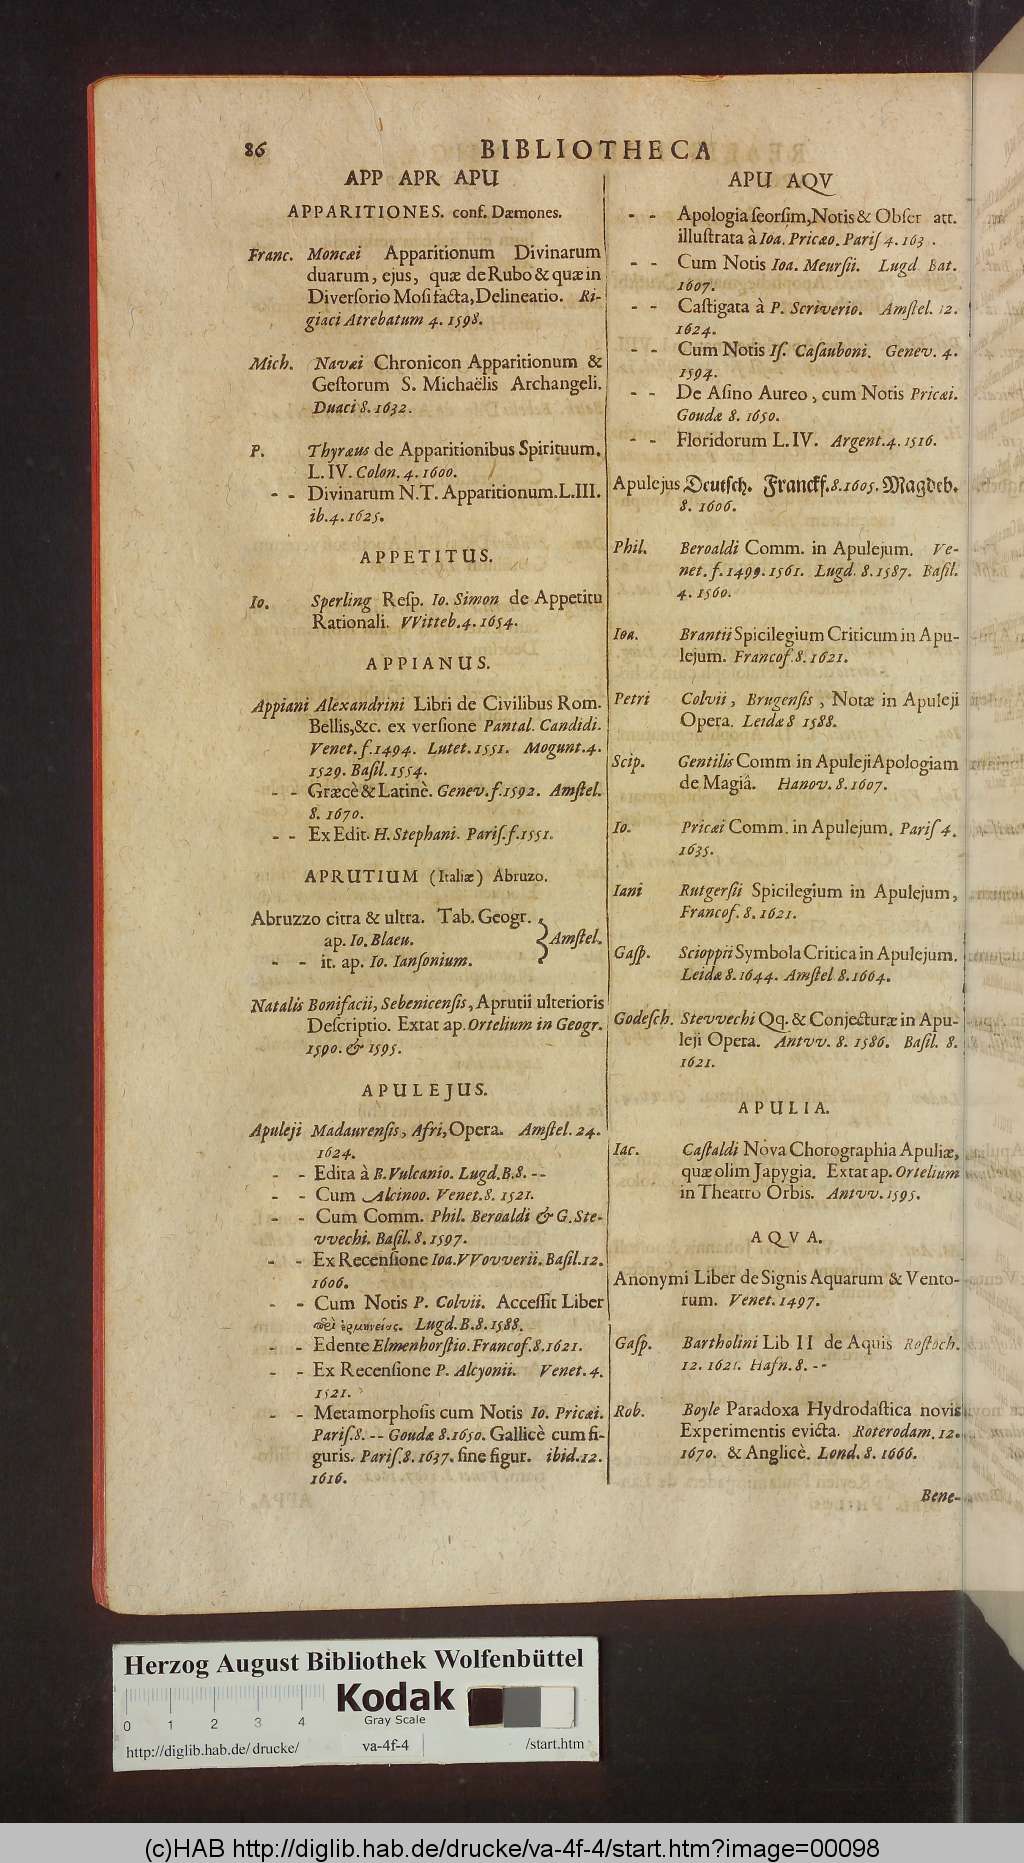 86
BIBLIOTHECA
APP APR APU
APPARITIONES. conf. Dæmones.
Franc. Moncæi Apparitionum Divinarum
duarum, ejus, quæ de Rubo & quæ in
Diverſorio Moſi facta, Delineatio. Ri-
giaci Atrebatum 4. 1598.
Mich. Navæi Chronicon Apparitionum &
Geſtorum S. Michaëlis Archangeli.
Duaci 8. 1632.
P. Thyræus de Apparitionibus Spirituum.
L. IV. Colon. 4. 1600.
- - Divinarum N.T. Apparitionum. L.III.
ib. 4. 1625.
APPETITUS.
Io. Sperling Reſp. Io. Simon de Appetitu
Rationali. VVitteb. 4. 1654.
APPIANUS.
Appiani Alexandrini Libri de Civilibus Rom.
Bellis, &c. ex verſione Pantal. Candidi.
Venet. f. 1494. Lutet. 1551. Mogunt. 4.
1529. Baſil. 1554.
- - Græcè & Latinè. Genev. f. 1592. Amſtel.
8. 1670.
- - Ex Edit. H. Stephani. Pariſ. f. 1551.
APRUTIUM (Italiæ) Abruzo.
Abruzzo citra & ultra. Tab. Geogr.
ap. Io. Blaeu. } Amſtel.
- - it. ap. Io. Ianſonium.
Natalis Bonifacii, Sebenicenſis, Aprutii ulterioris
Deſcriptio. Extat ap. Ortelium in Geogr.
1590. & 1595.
APULEJUS.
Apuleji Madaurenſis, Afri, Opera. Amſtel. 24.
1624.
- - Edita à B. Vulcanio. Lugd. B. 8. - -
- - Cum Alcinoo. Venet. 8. 1521.
- - Cum Comm. Phil. Beroaldi & G. Ste-
vvechi. Baſil. 8. 1597.
- - Ex Recenſione Ioa. VVovverii. Baſil. 12.
1606.
- - Cum Notis P. Colvii. Acceſſit Liber
περὶ ἑρμηνείας. Lugd. B. 8. 1588.
- - Edente Elmenhorſtio. Francof. 8. 1621.
- - Ex Recenſione P. Alcyonii. Venet. 4.
1521.
- - Metamorphoſis cum Notis Io. Pricæi.
Pariſ. 8. - - Goudæ 8. 1650. Gallicè cum fi-
guris. Pariſ. 8. 1637. ſine figur. ibid. 12.
1616.
APU AQV
- - Apologia ſeorſim, Notis & Obſer att.
illuſtrata à Ioa. Pricæo. Pariſ 4. 163 .
- - Cum Notis Ioa. Meurſii. Lugd Bat.
1607.
- - Caſtigata à P. Scriverio. Amſtel. 12.
1624.
- - Cum Notis Iſ. Caſauboni. Genev. 4.
1594.
- - De Aſino Aureo, cum Notis Pricæi.
Goudæ 8. 1650.
- - Floridorum L. IV. Argent. 4. 1516.
Apulejus Deutſch. Franckf. 8. 1605. Magdeb.
8. 1606.
Phil. Beroaldi Comm. in Apulejum. Ve-
net. f. 1499. 1561. Lugd. 8. 1587. Baſil.
4. 1560.
Ioa. Brantii Spicilegium Criticum in Apu-
lejum. Francof. 8. 1621.
Petri Colvii, Brugenſis, Notæ in Apuleji
Opera. Leidæ 8 1588.
Scip. Gentilis Comm in Apuleji Apologiam
de Magiâ. Hanov. 8. 1607.
Io. Pricæi Comm. in Apulejum. Pariſ 4.
1635.
Iani Rutgerſii Spicilegium in Apulejum,
Francof. 8. 1621.
Gaſp. Scioppii Symbola Critica in Apulejum.
Leidæ 8. 1644. Amſtel 8. 1664.
Godeſch. Stevvechi Qq. & Conjecturæ in Apu-
leji Opera. Antvv. 8. 1586. Baſil. 8.
1621.
APULIA.
Iac. Caſtaldi Nova Chorographia Apuliæ,
quæ olim Japygia. Extat ap. Ortelium
in Theatro Orbis. Antvv. 1595.
AQVA.
Anonymi Liber de Signis Aquarum & Vento-
rum. Venet. 1497.
Gaſp. Bartholini Lib II de Aquis Roſtoch.
12. 1621. Hafn. 8. - -
Rob. Boyle Paradoxa Hydrodaſtica novis
Experimentis evicta. Roterodam. 12.
1670. & Anglicè. Lond. 8. 1666.
Bene-
Herzog August Bibliothek Wolfenbüttel
Kodak
Gray Scale
0 1 2 3 4
http://diglib.hab.de/drucke/ va-4f-4 /start.htm
(c)HAB http://diglib.hab.de/drucke/va-4f-4/start.htm?image=00098